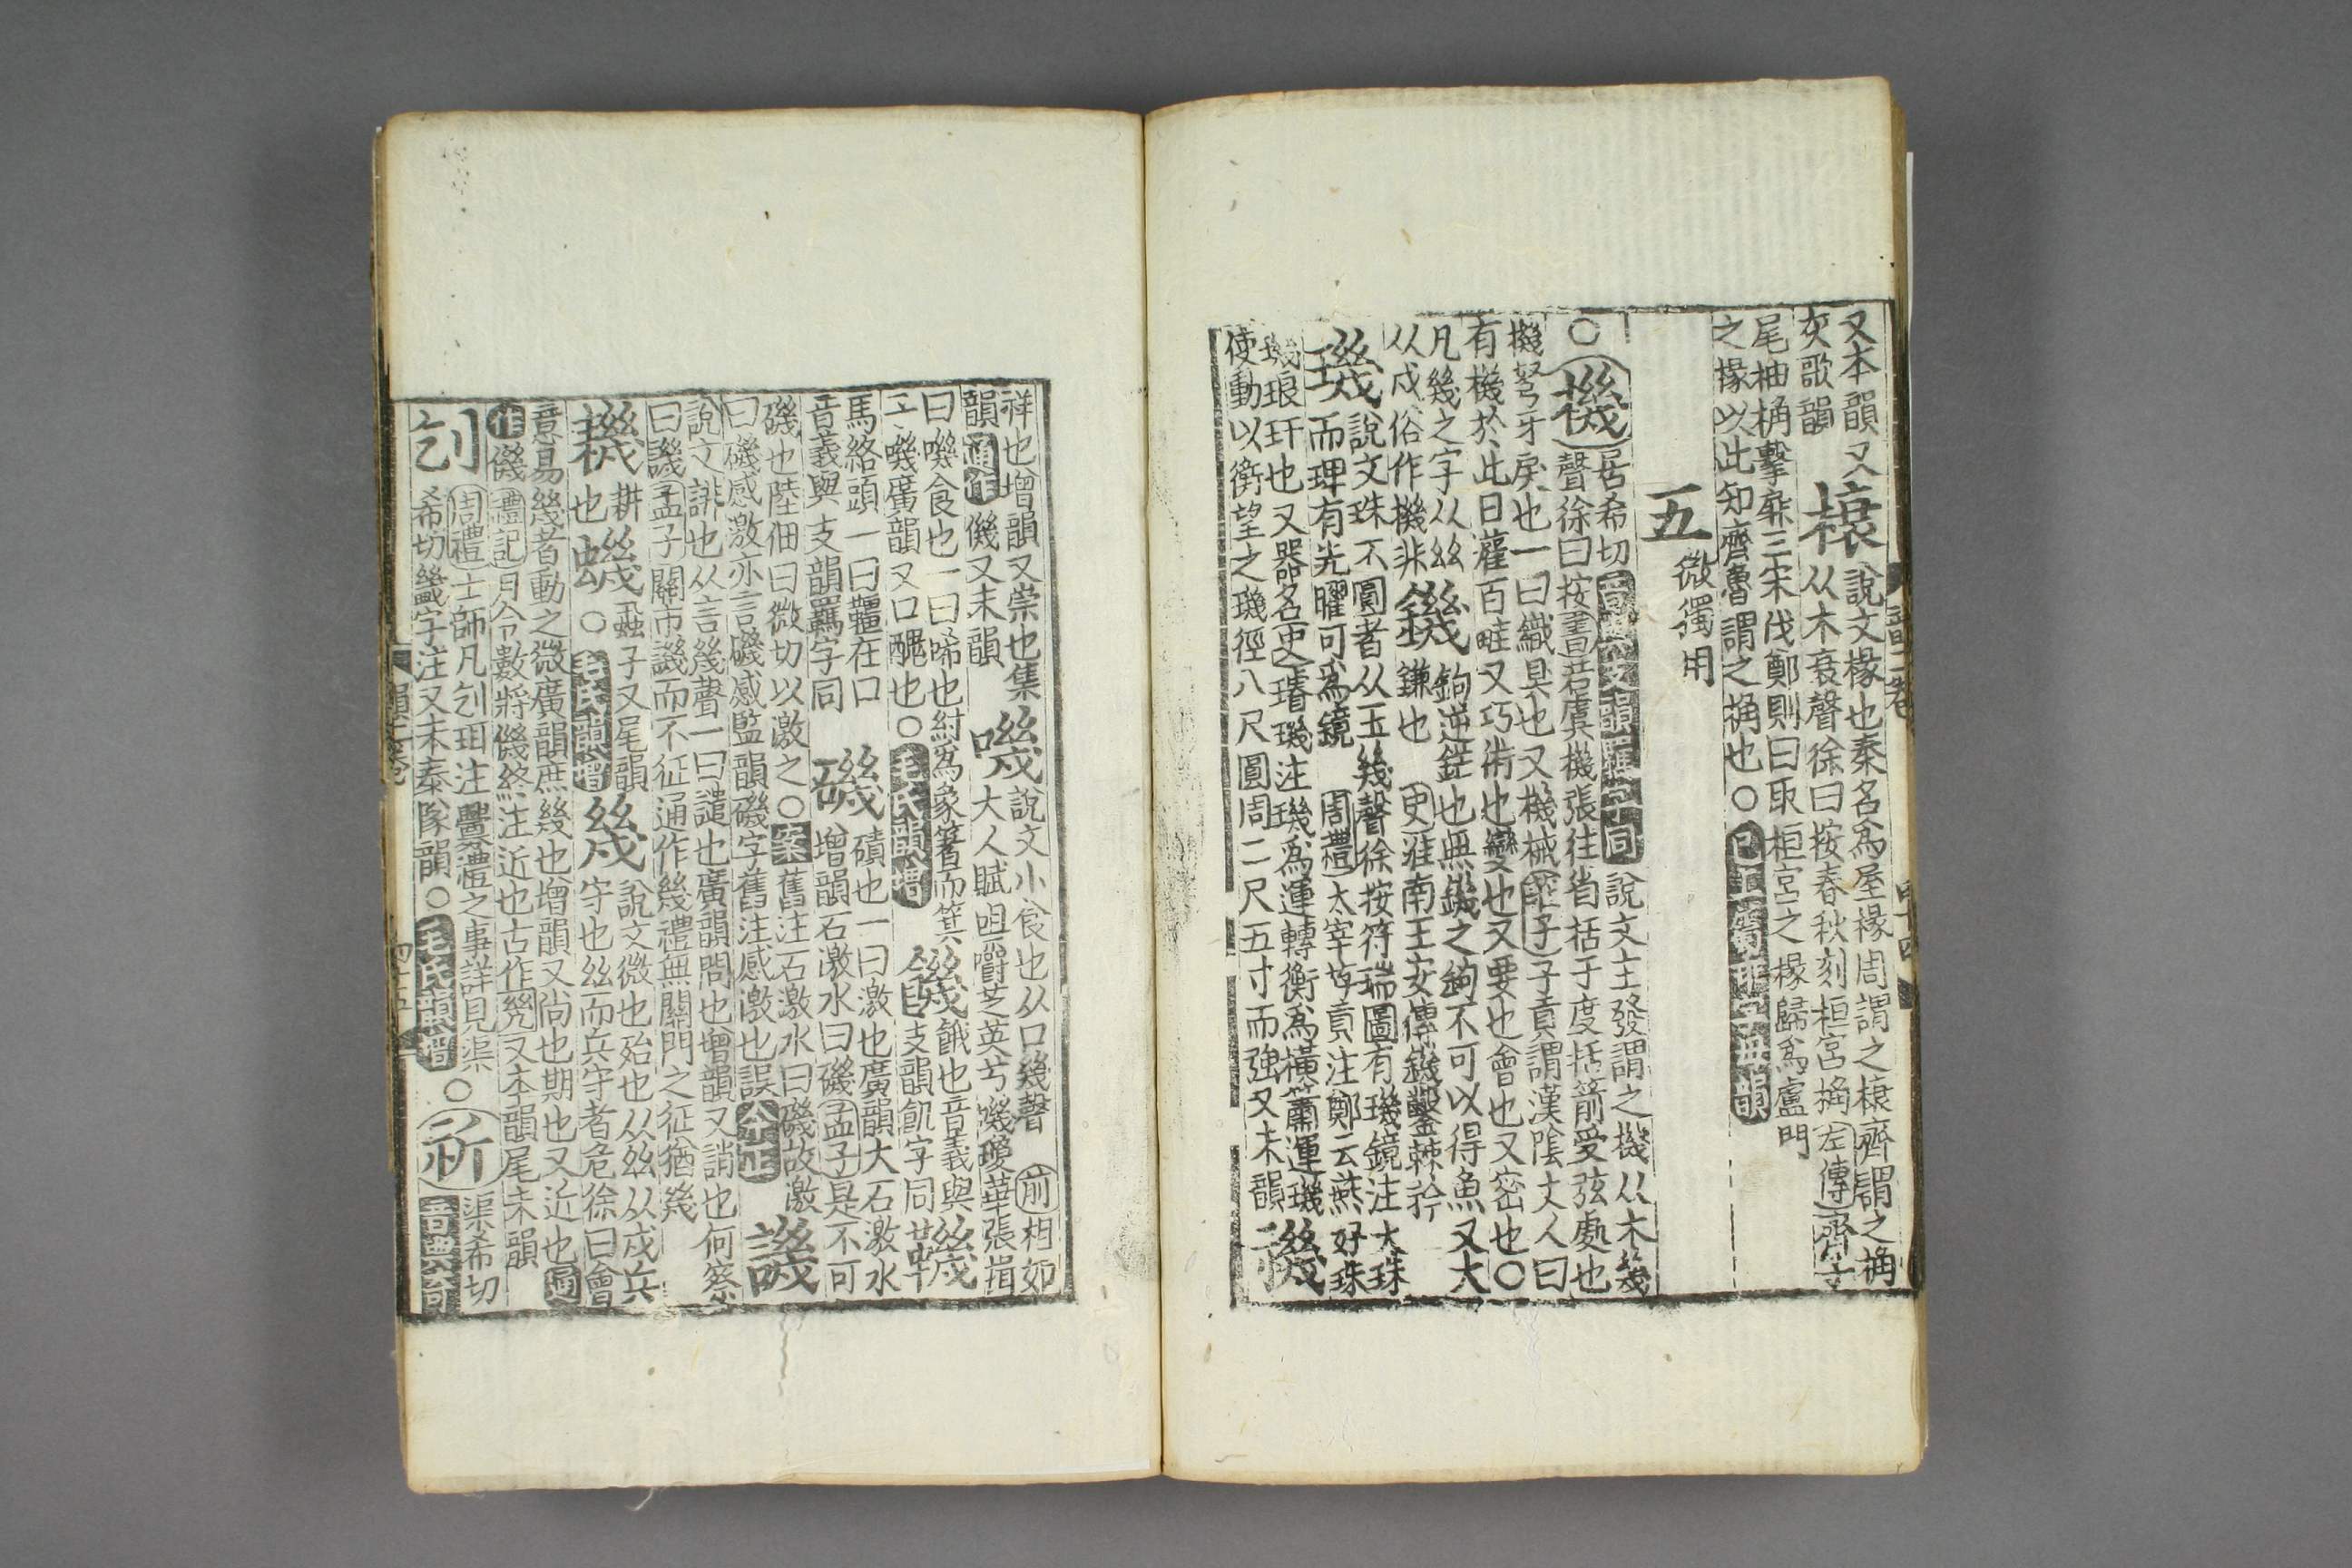 又本韻又
灰歌韻
榱
說文椽也秦名爲屋椽周謂之榱齊謂之桷
从木衰聲徐曰按春秋刻桓宮桷左傳齊子
尾抽桷擊扉三宋伐鄭則曰取桓宮之椽歸爲盧門
之椽以此知齊魯謂之桷也○已上
五
微獨用
○機
居希切音與支韻羈同說文主發謂之機从木幾
聲徐曰按書若虞機張往省括于度括箭受弦處也
機弩牙戾也一曰織具也又機械莊子子貢謂漢陰丈人曰
有機於此日灌百畦又巧術也變也又要也會也又密也○
凡幾之字从𢆶
从戍俗作機非
鐖
鉤逆鋩也無鐖之鉤不可以得魚又大
鎌也史淮南王安傳鐖鑿棘矜
璣
說文珠不圓者从玉幾聲徐按符瑞圖有璣鏡注大珠
而琕有光曜可爲鏡周禮太宰夸貢注鄭云燕好珠
璣琅玕也又器名史璿璣注璣爲運轉衡爲橫簫運璣
使動以衡望之璣徑八尺圓周二尺五寸而強又未韻
禨
祥也增韻又祟也集
韻通作僟又未韻
嘰
說文小食也从口幾聲前相如
大人賦咀嚼芝英兮嘰瓊華張揖
曰嘰食也一曰唏也紂爲象箸而箕
子嘰廣韻又口醜也○毛氏韻增
饑
餓也音義與
支韻飢字同
鞿
馬絡頭一曰韁在口
音義與支韻羈字同
磯
磧也一曰激也廣韻大石激水
增韻石激水曰磯孟子是不可
磯也陸佃曰微切以激之○案舊注石激水曰磯故激
曰磯感激亦言磯感監韻磯字舊注感激也誤今正
譏
說文誹也从言幾聲一曰譴也廣韻問也增韻又誚也何察
曰譏孟子關市譏而不征通作幾禮無關門之征猶幾
耭
耕
也
蟣
蝨子又尾韻
○毛氏韻增
幾
說文微也殆也从𢆶从戍兵
守也𢆶而兵守者危徐曰會
意易幾者動之微廣韻庶幾也增韻又尚也期也又近也通
作僟禮記月令數將僟終注近也古作㡬又本韻尾未韻
刉
周禮士師凡刉珥注釁禮之事詳見渠
希切蟣字注又未泰隊韻○毛氏韻增
○祈
渠希切
音與奇
韻二卷
四十五